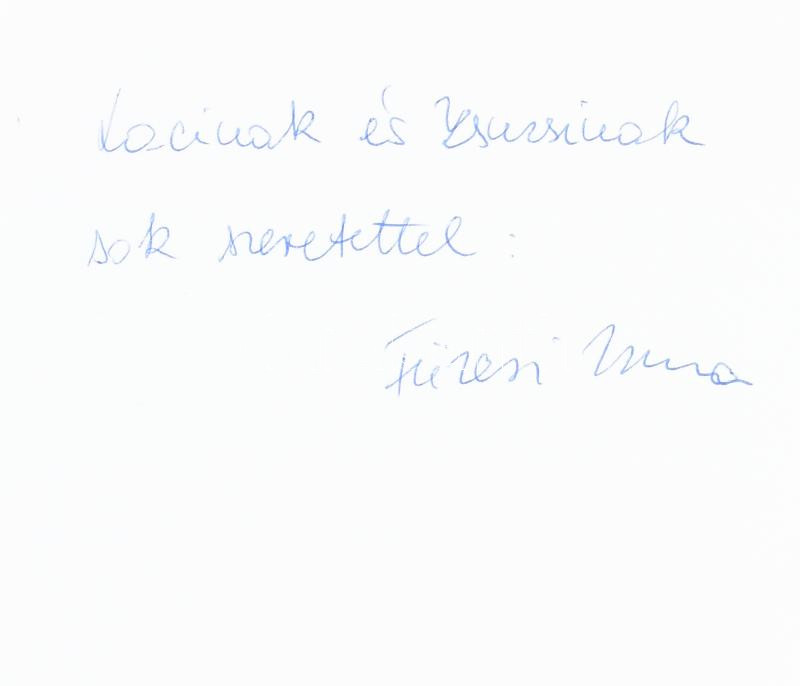 Lacinak és Zsuzsinak
sok szeretettel :
Füzesi Zsuzsa